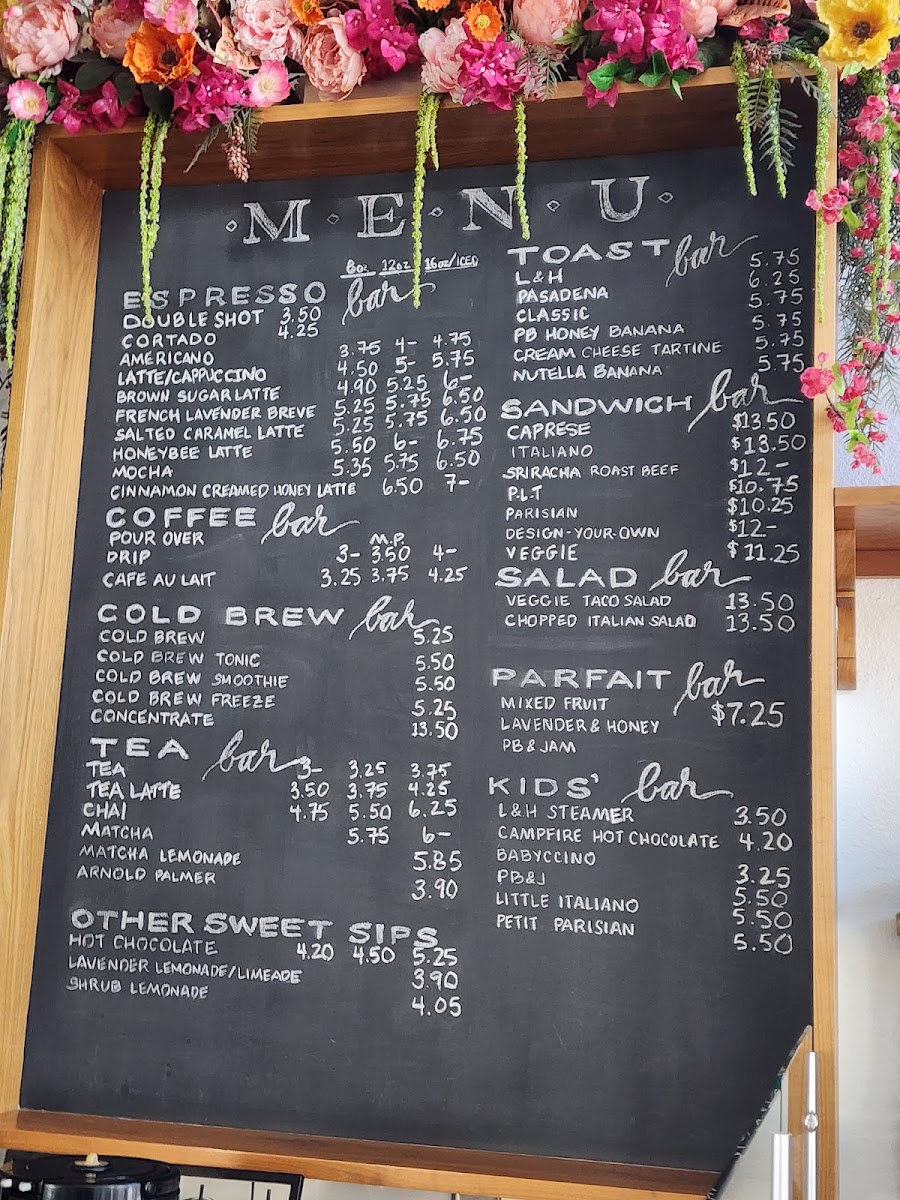 M · E · N · U
8oz 12oz 16oz/ICED
ESPRESSO bar
DOUBLE SHOT 3.50
CORTADO 4.25
AMERICANO 3.75 4- 4.75
LATTE/CAPPUCCINO 4.50 5- 5.75
BROWN SUGAR LATTE 4.90 5.25 6-
FRENCH LAVENDER BREVE 5.25 5.75 6.50
SALTED CARAMEL LATTE 5.25 5.75 6.50
HONEYBEE LATTE 5.50 6- 6.75
MOCHA 5.35 5.75 6.50
CINNAMON CREAMED HONEY LATTE 6.50 7-
COFFEE bar
POUR OVER M.P.
DRIP 3- 3.50 4-
CAFE AU LAIT 3.25 3.75 4.25
COLD BREW bar
COLD BREW 5.25
COLD BREW TONIC 5.50
COLD BREW SMOOTHIE 5.50
COLD BREW FREEZE 5.25
CONCENTRATE 13.50
TEA bar
TEA 3- 3.25 3.75
TEA LATTE 3.50 3.75 4.25
CHAI 4.75 5.50 6.25
MATCHA 5.75 6-
MATCHA LEMONADE 5.85
ARNOLD PALMER 3.90
OTHER SWEET SIPS
HOT CHOCOLATE 4.20 4.50 5.25
LAVENDER LEMONADE/LIMEADE 3.90
SHRUB LEMONADE 4.05
TOAST bar
L&H 5.75
PASADENA 6.25
CLASSIC 5.75
PB HONEY BANANA 5.75
CREAM CHEESE TARTINE 5.75
NUTELLA BANANA 5.75
SANDWICH bar
CAPRESE $13.50
ITALIANO $13.50
SRIRACHA ROAST BEEF $12-
P.L.T $10.75
PARISIAN $10.25
DESIGN-YOUR-OWN $12-
VEGGIE $11.25
SALAD bar
VEGGIE TACO SALAD 13.50
CHOPPED ITALIAN SALAD 13.50
PARFAIT bar
MIXED FRUIT $7.25
LAVENDER & HONEY
PB & JAM
KIDS' bar
L&H STEAMER 3.50
CAMPFIRE HOT CHOCOLATE 4.20
BABYCCINO 3.25
PB&J 5.50
LITTLE ITALIANO 5.50
PETIT PARISIAN 5.50